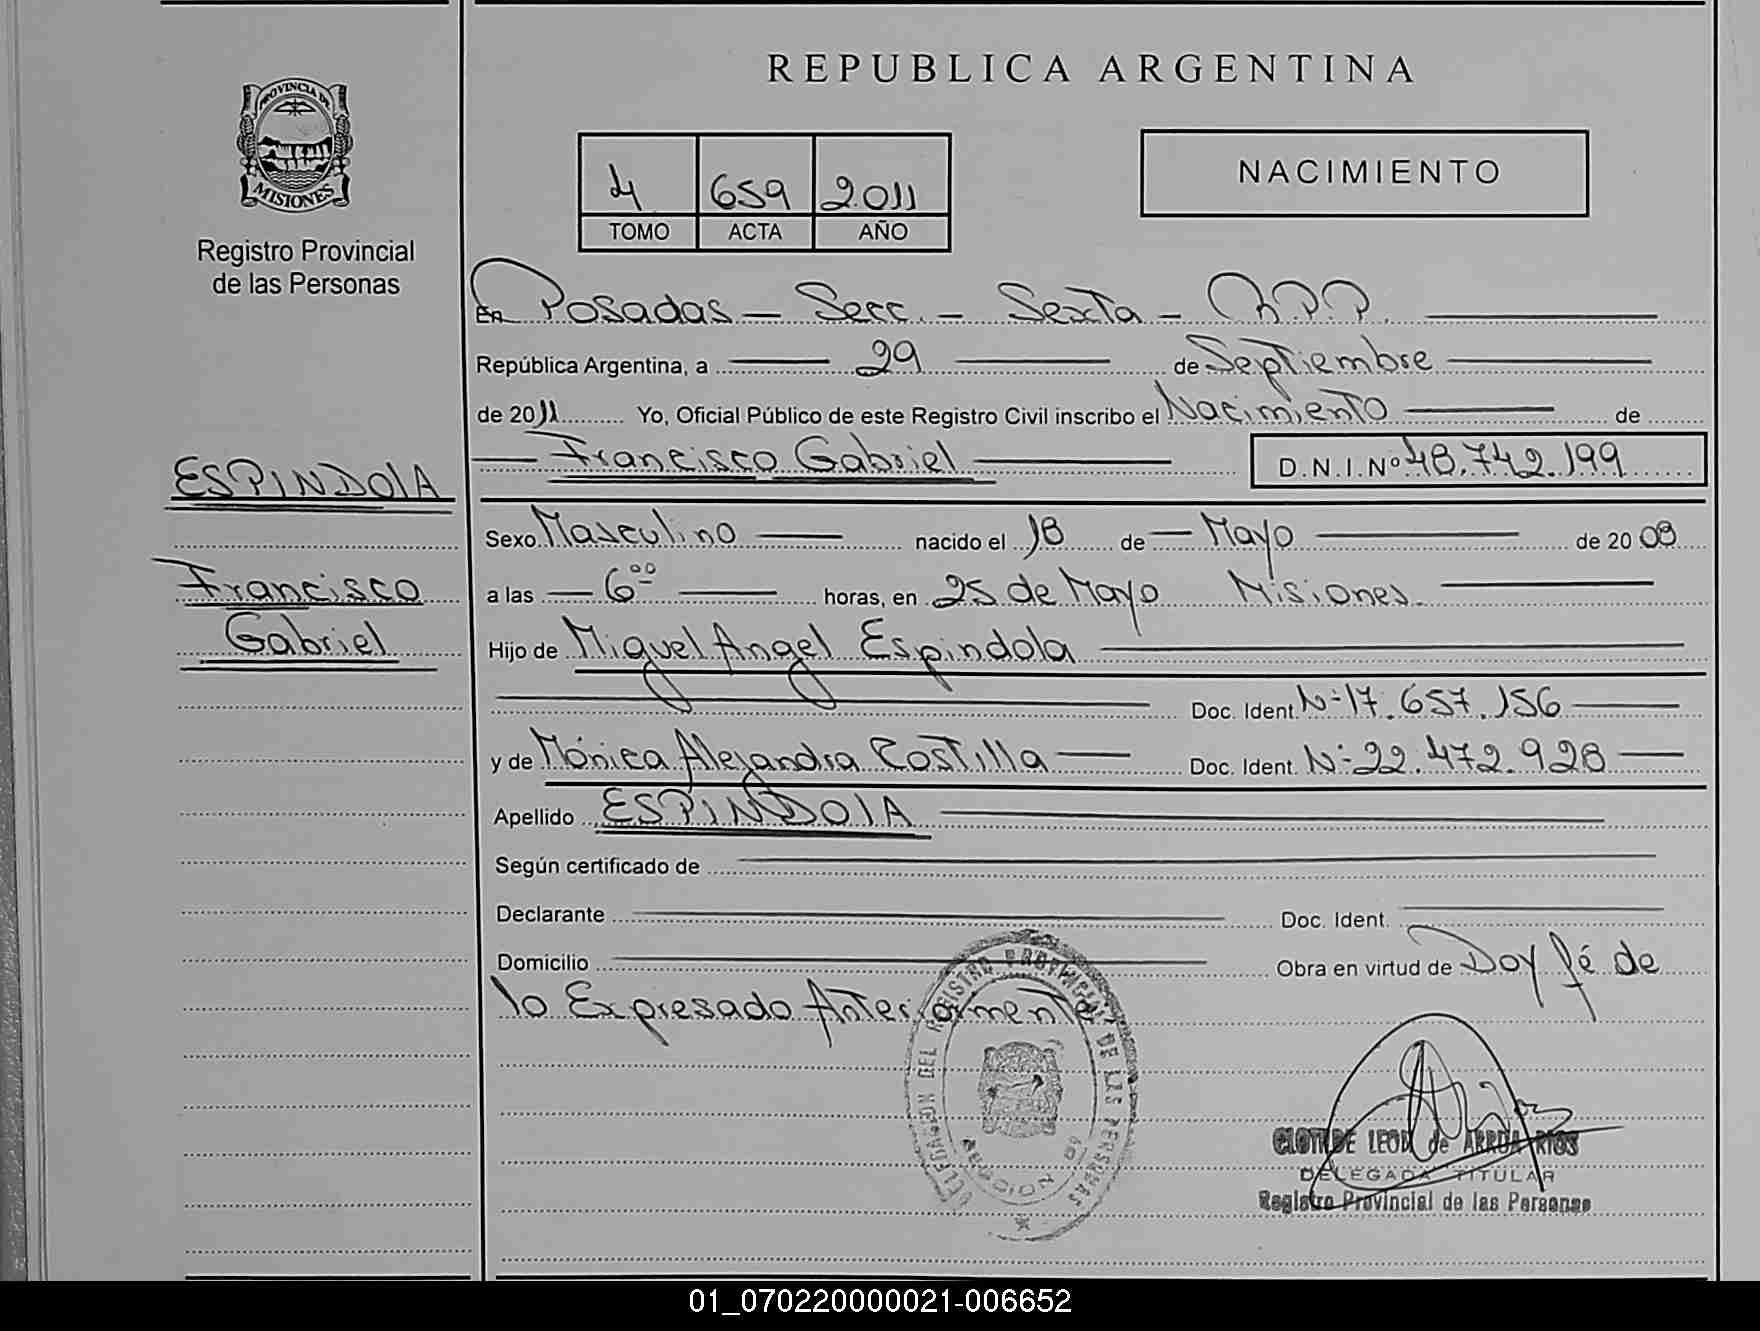 REPUBLICA ARGENTINA
PROVINCIA DE
MISIONES
Registro Provincial
de las Personas
4 659 2.011
TOMO ACTA AÑO
NACIMIENTO
En Posadas - Secc. - Sexta - R.P.P.
República Argentina, a 29 de Septiembre
de 2011 Yo, Oficial Público de este Registro Civil inscribo el Nacimiento de
Francisco Gabriel D.N.I.Nº 48.742.199
ESPINDOLA
Francisco
Gabriel
Sexo Masculino nacido el 18 de Mayo de 2008
a las 6⁰⁰ horas, en 25 de Mayo Misiones.
Hijo de Miguel Angel Espindola
Doc. Ident. Nº 17.657.156
y de Mónica Alejandra Costilla Doc. Ident. Nº 22.472.928
Apellido ESPINDOLA
Según certificado de
Declarante Doc. Ident.
Domicilio Obra en virtud de Doy fé de
lo Expresado Anteriormente
DELEGACION DEL REGISTRO PROVINCIAL DE LAS PERSONAS
CLOTILDE LEON de ARRUA RIOS
DELEGADA TITULAR
Registro Provincial de las Personas
01_070220000021-006652